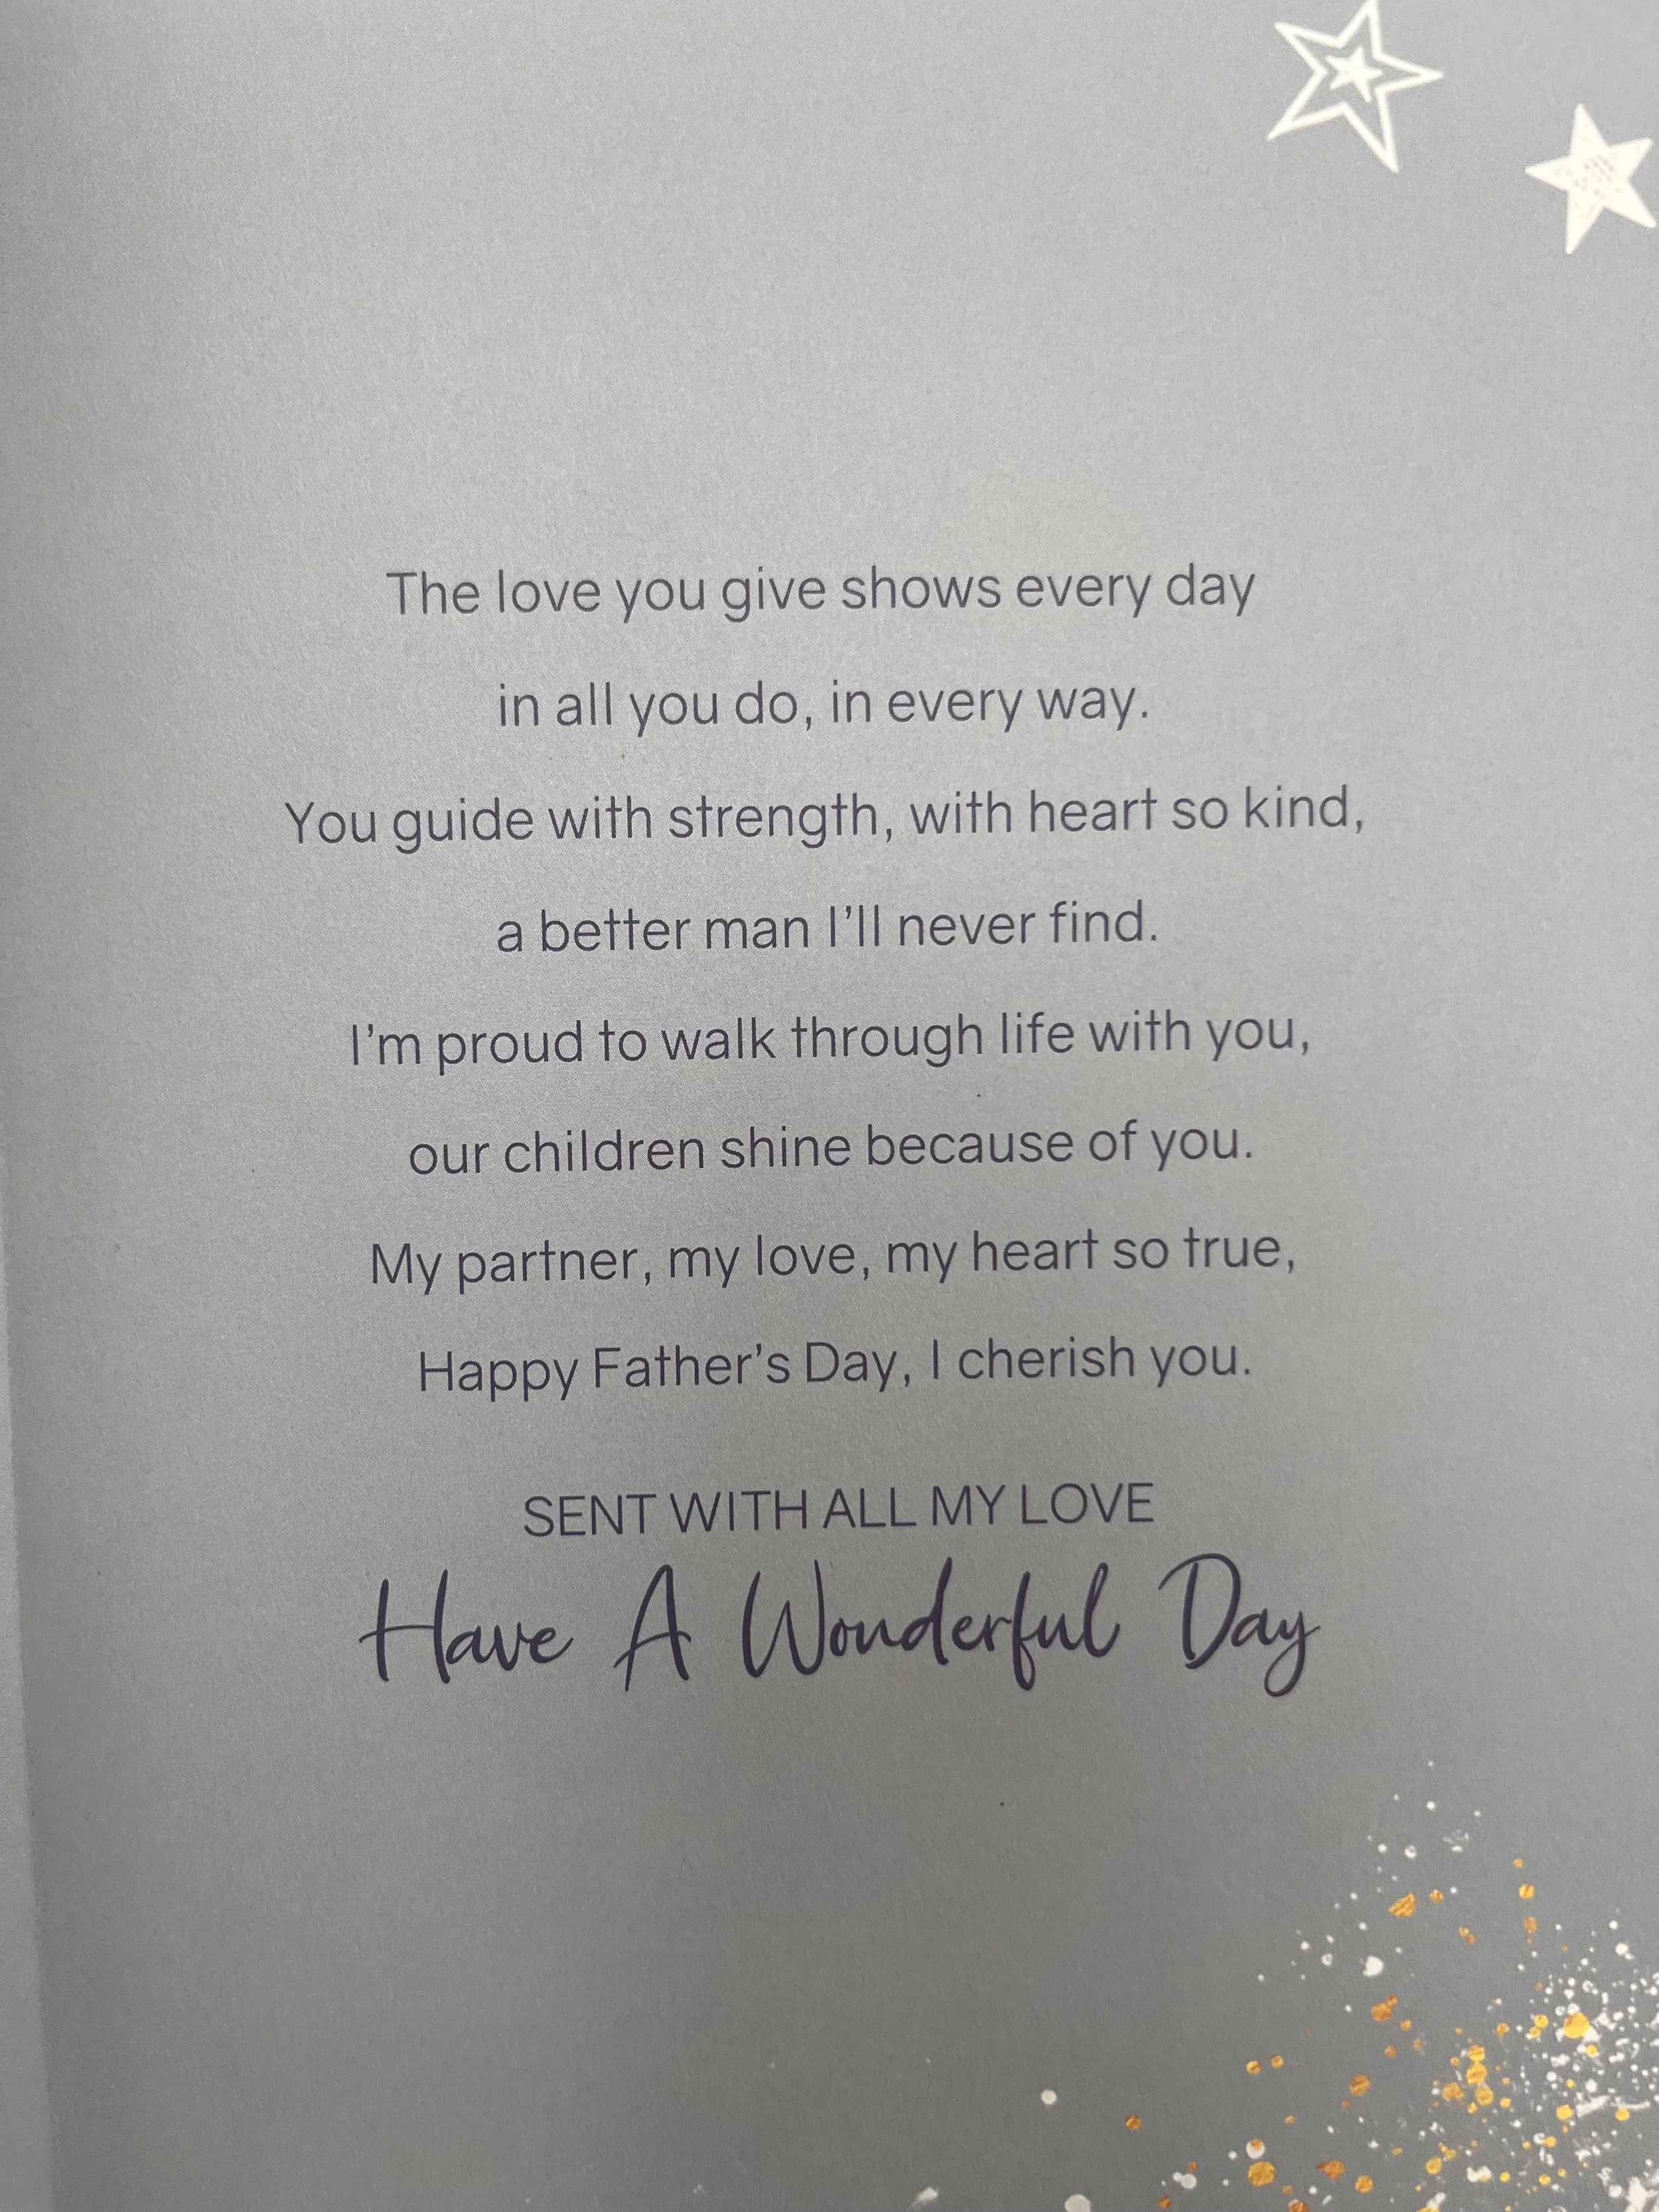 The love you give shows every day
in all you do, in every way.
You guide with strength, with heart so kind,
a better man I’ll never find.
I’m proud to walk through life with you,
our children shine because of you.
My partner, my love, my heart so true,
Happy Father’s Day, I cherish you.
SENT WITH ALL MY LOVE
Have A Wonderful Day